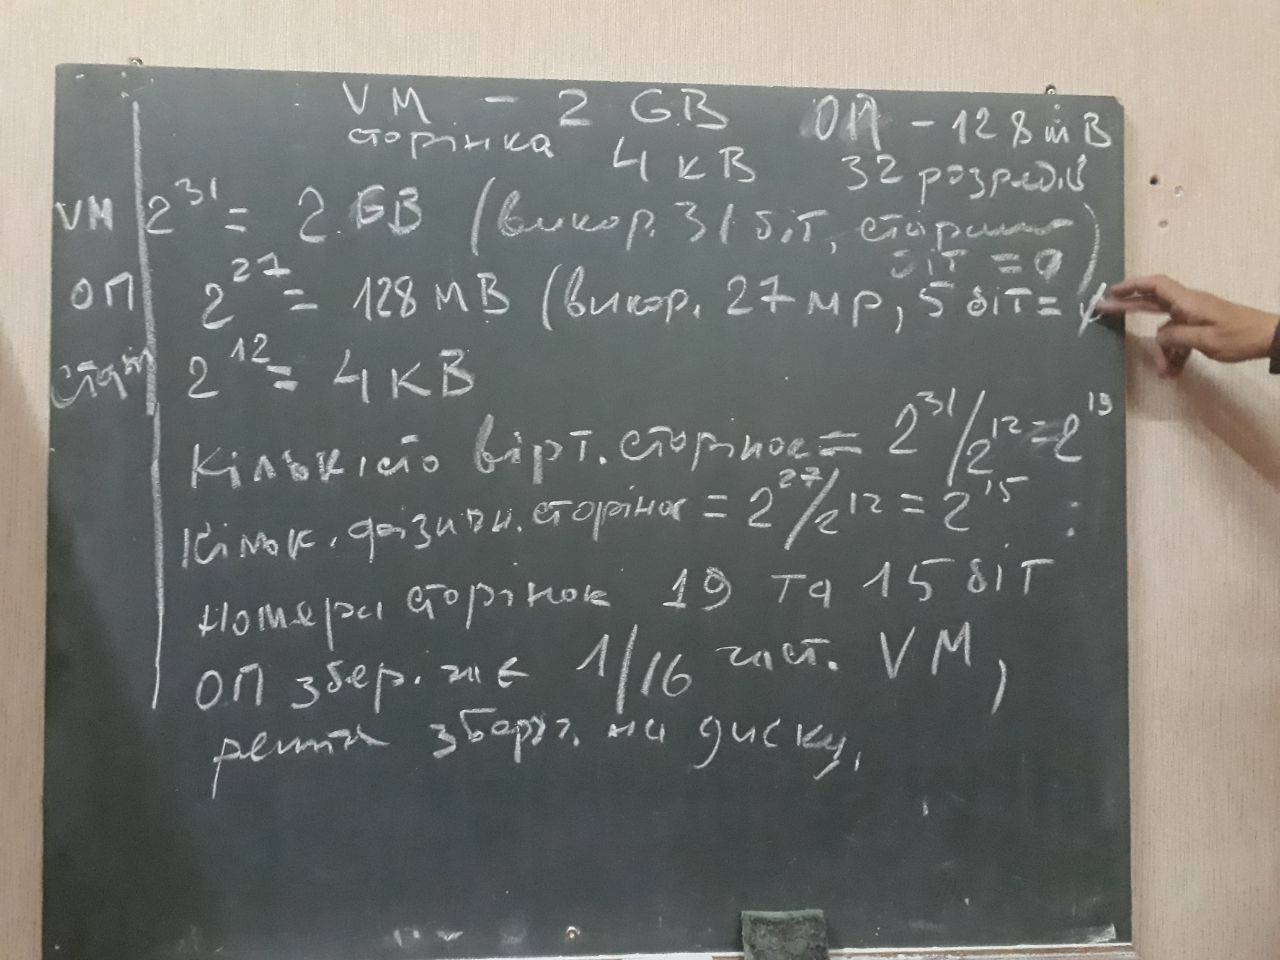 VM - 2 GB ОП - 128 mB
сторінка 4 кВ 32 розрядів
VM 2^31 = 2 GB (викор. 31 біт, старший
біт = 0)
ОП 2^27 = 128 МВ (викор. 27 мр, 5 біт =
2^12 = 4 КВ
Кількість вірт. сторінок = 2^31/2^12 = 2^19
Кільк. фізичн. сторінок = 2^27/2^12 = 2^15 :
номери сторінок 19 та 15 біт
ОП збер. 1/16 част. VM,
решта зберіг. на диску.